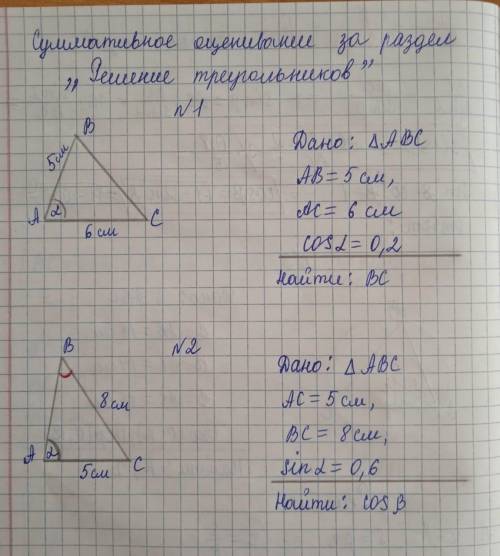 Суммативное оценивание за раздел
„Решение треугольников”
№1
B
5см
A
α
C
6 см
Дано: △ABC
AB = 5 см,
AC = 6 см
cosα = 0,2
Найти: BC
№2
B
8 см
A
α
C
5см
Дано: △ABC
AC = 5 см,
BC = 8 см,
sinα = 0,6
Найти: cosB